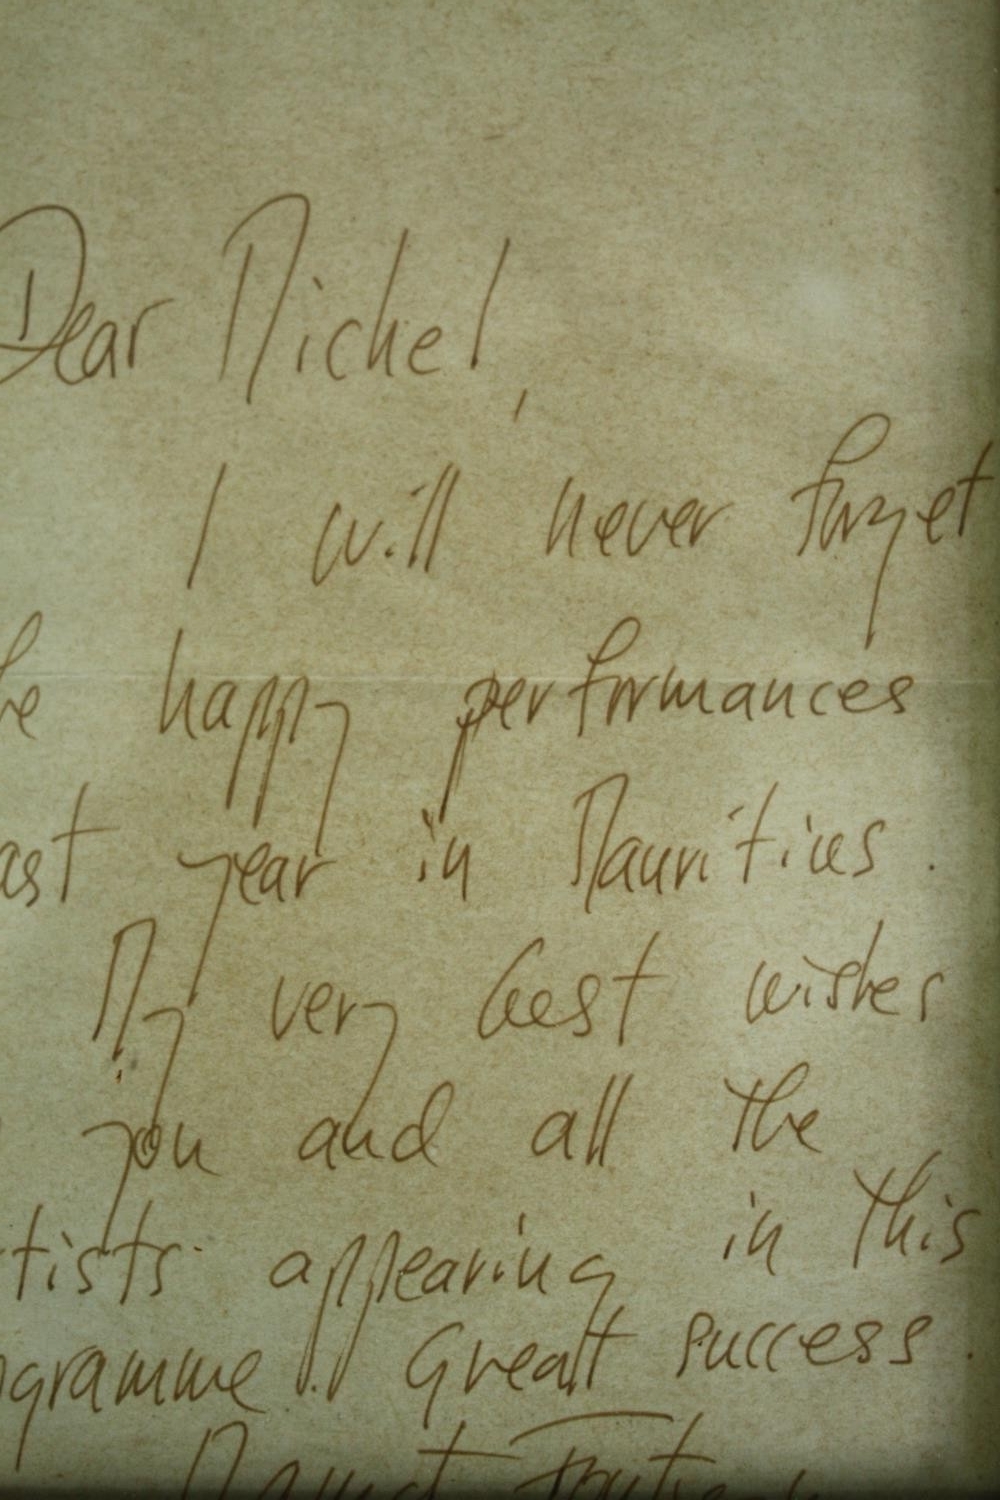 Dear Michel,
I will never forget
he happy performances
ast year in Mauritius.
My very best wishes
you and all the
tists appearing in this
ogramme. Great success.